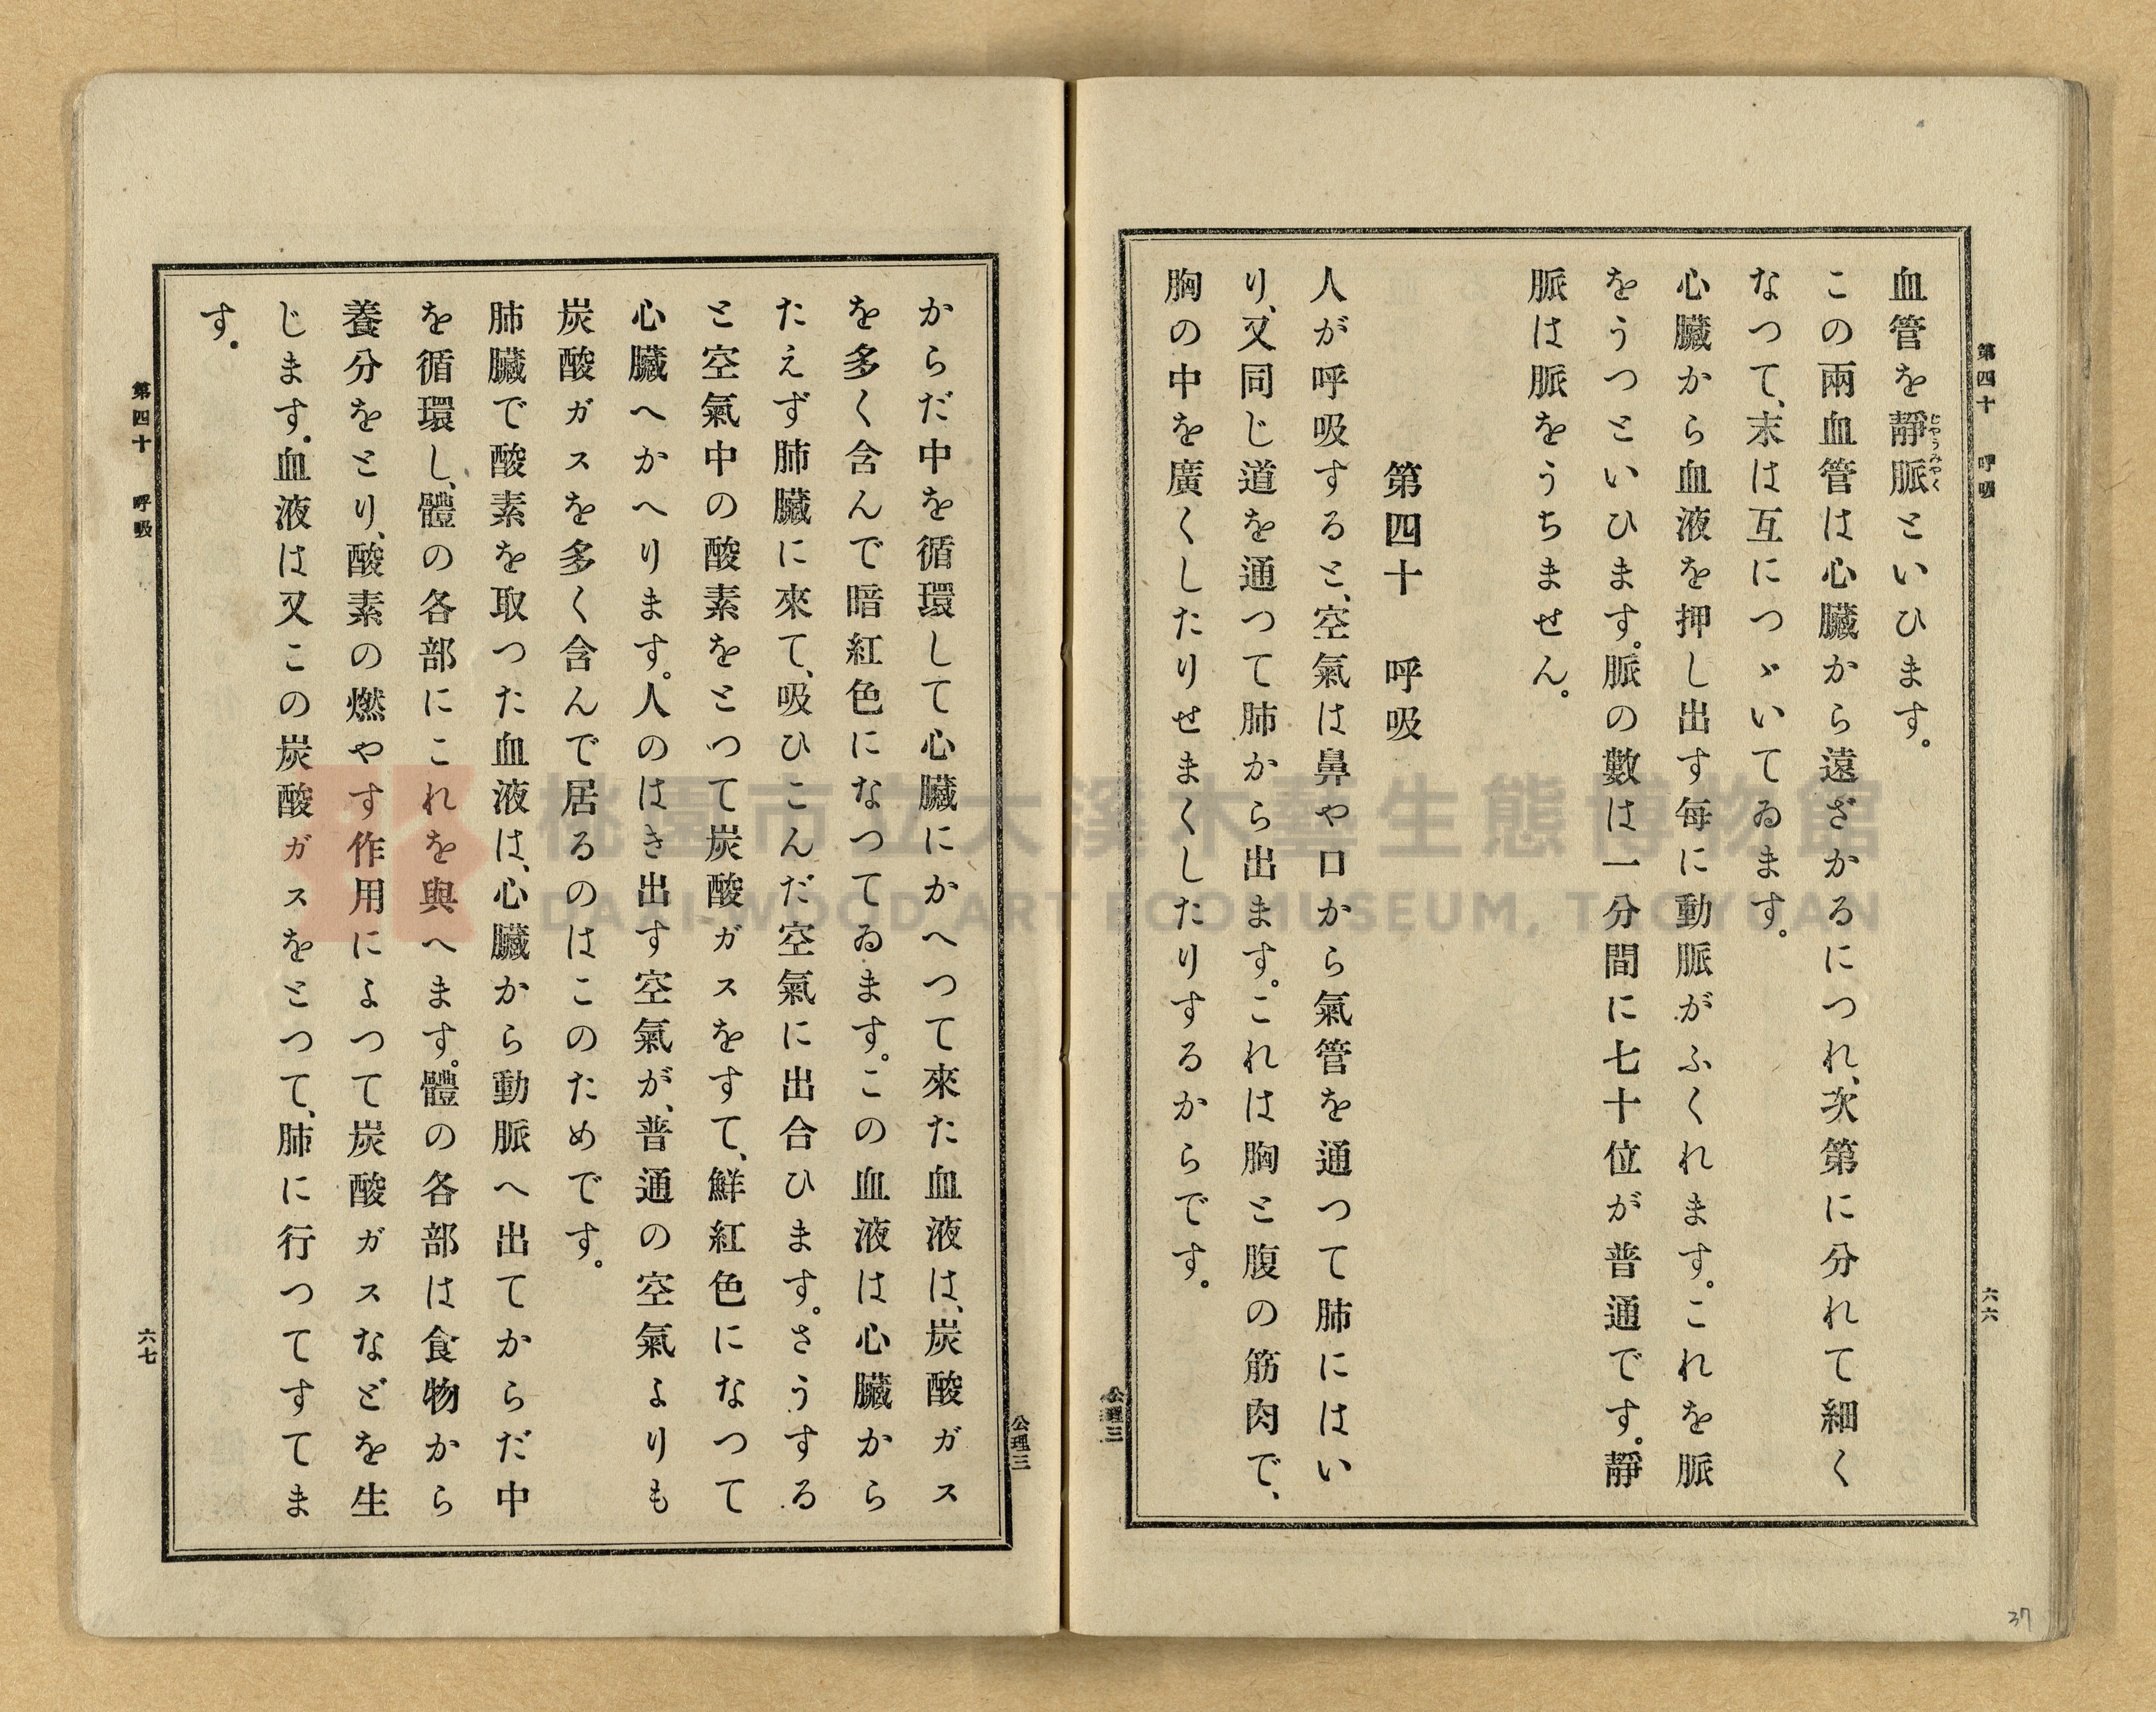 第四十　呼吸
六六
血管を靜脈といひます。
じやうみやく
この兩血管は心臟から遠ざかるにつれ、次第に分れて細く
なつて、末は互につゞいてゐます。
心臟から血液を押し出す每に動脈がふくれます。これを脈
をうつといひます。脈の數は一分間に七十位が普通です。靜
脈は脈をうちません。
第四十　呼吸
人が呼吸すると、空氣は鼻や口から氣管を通つて肺にはい
り、又同じ道を通つて肺から出ます。これは胸と腹の筋肉で、
胸の中を廣くしたりせまくしたりするからです。
公理三
公理三
からだ中を循環して心臟にかへつて來た血液は、炭酸ガス
を多く含んで暗紅色になつてゐます。この血液は心臟から
たえず肺臟に來て、吸ひこんだ空氣に出合ひます。さうする
と空氣中の酸素をとつて炭酸ガスをすて、鮮紅色になつて
心臟へかへります。人のはき出す空氣が、普通の空氣よりも
炭酸ガスを多く含んで居るのはこのためです。
肺臟で酸素を取つた血液は、心臟から動脈へ出てからだ中
を循環し、體の各部にこれを與へます。體の各部は食物から
養分をとり、酸素の燃やす作用によつて炭酸ガスなどを生
じます。血液は又この炭酸ガスをとつて、肺に行つてすてま
す。
第四十　呼吸
六七
37
桃園市立大溪木藝生態博物館
DAXI WOOD ART ECOMUSEUM, TAOYUAN